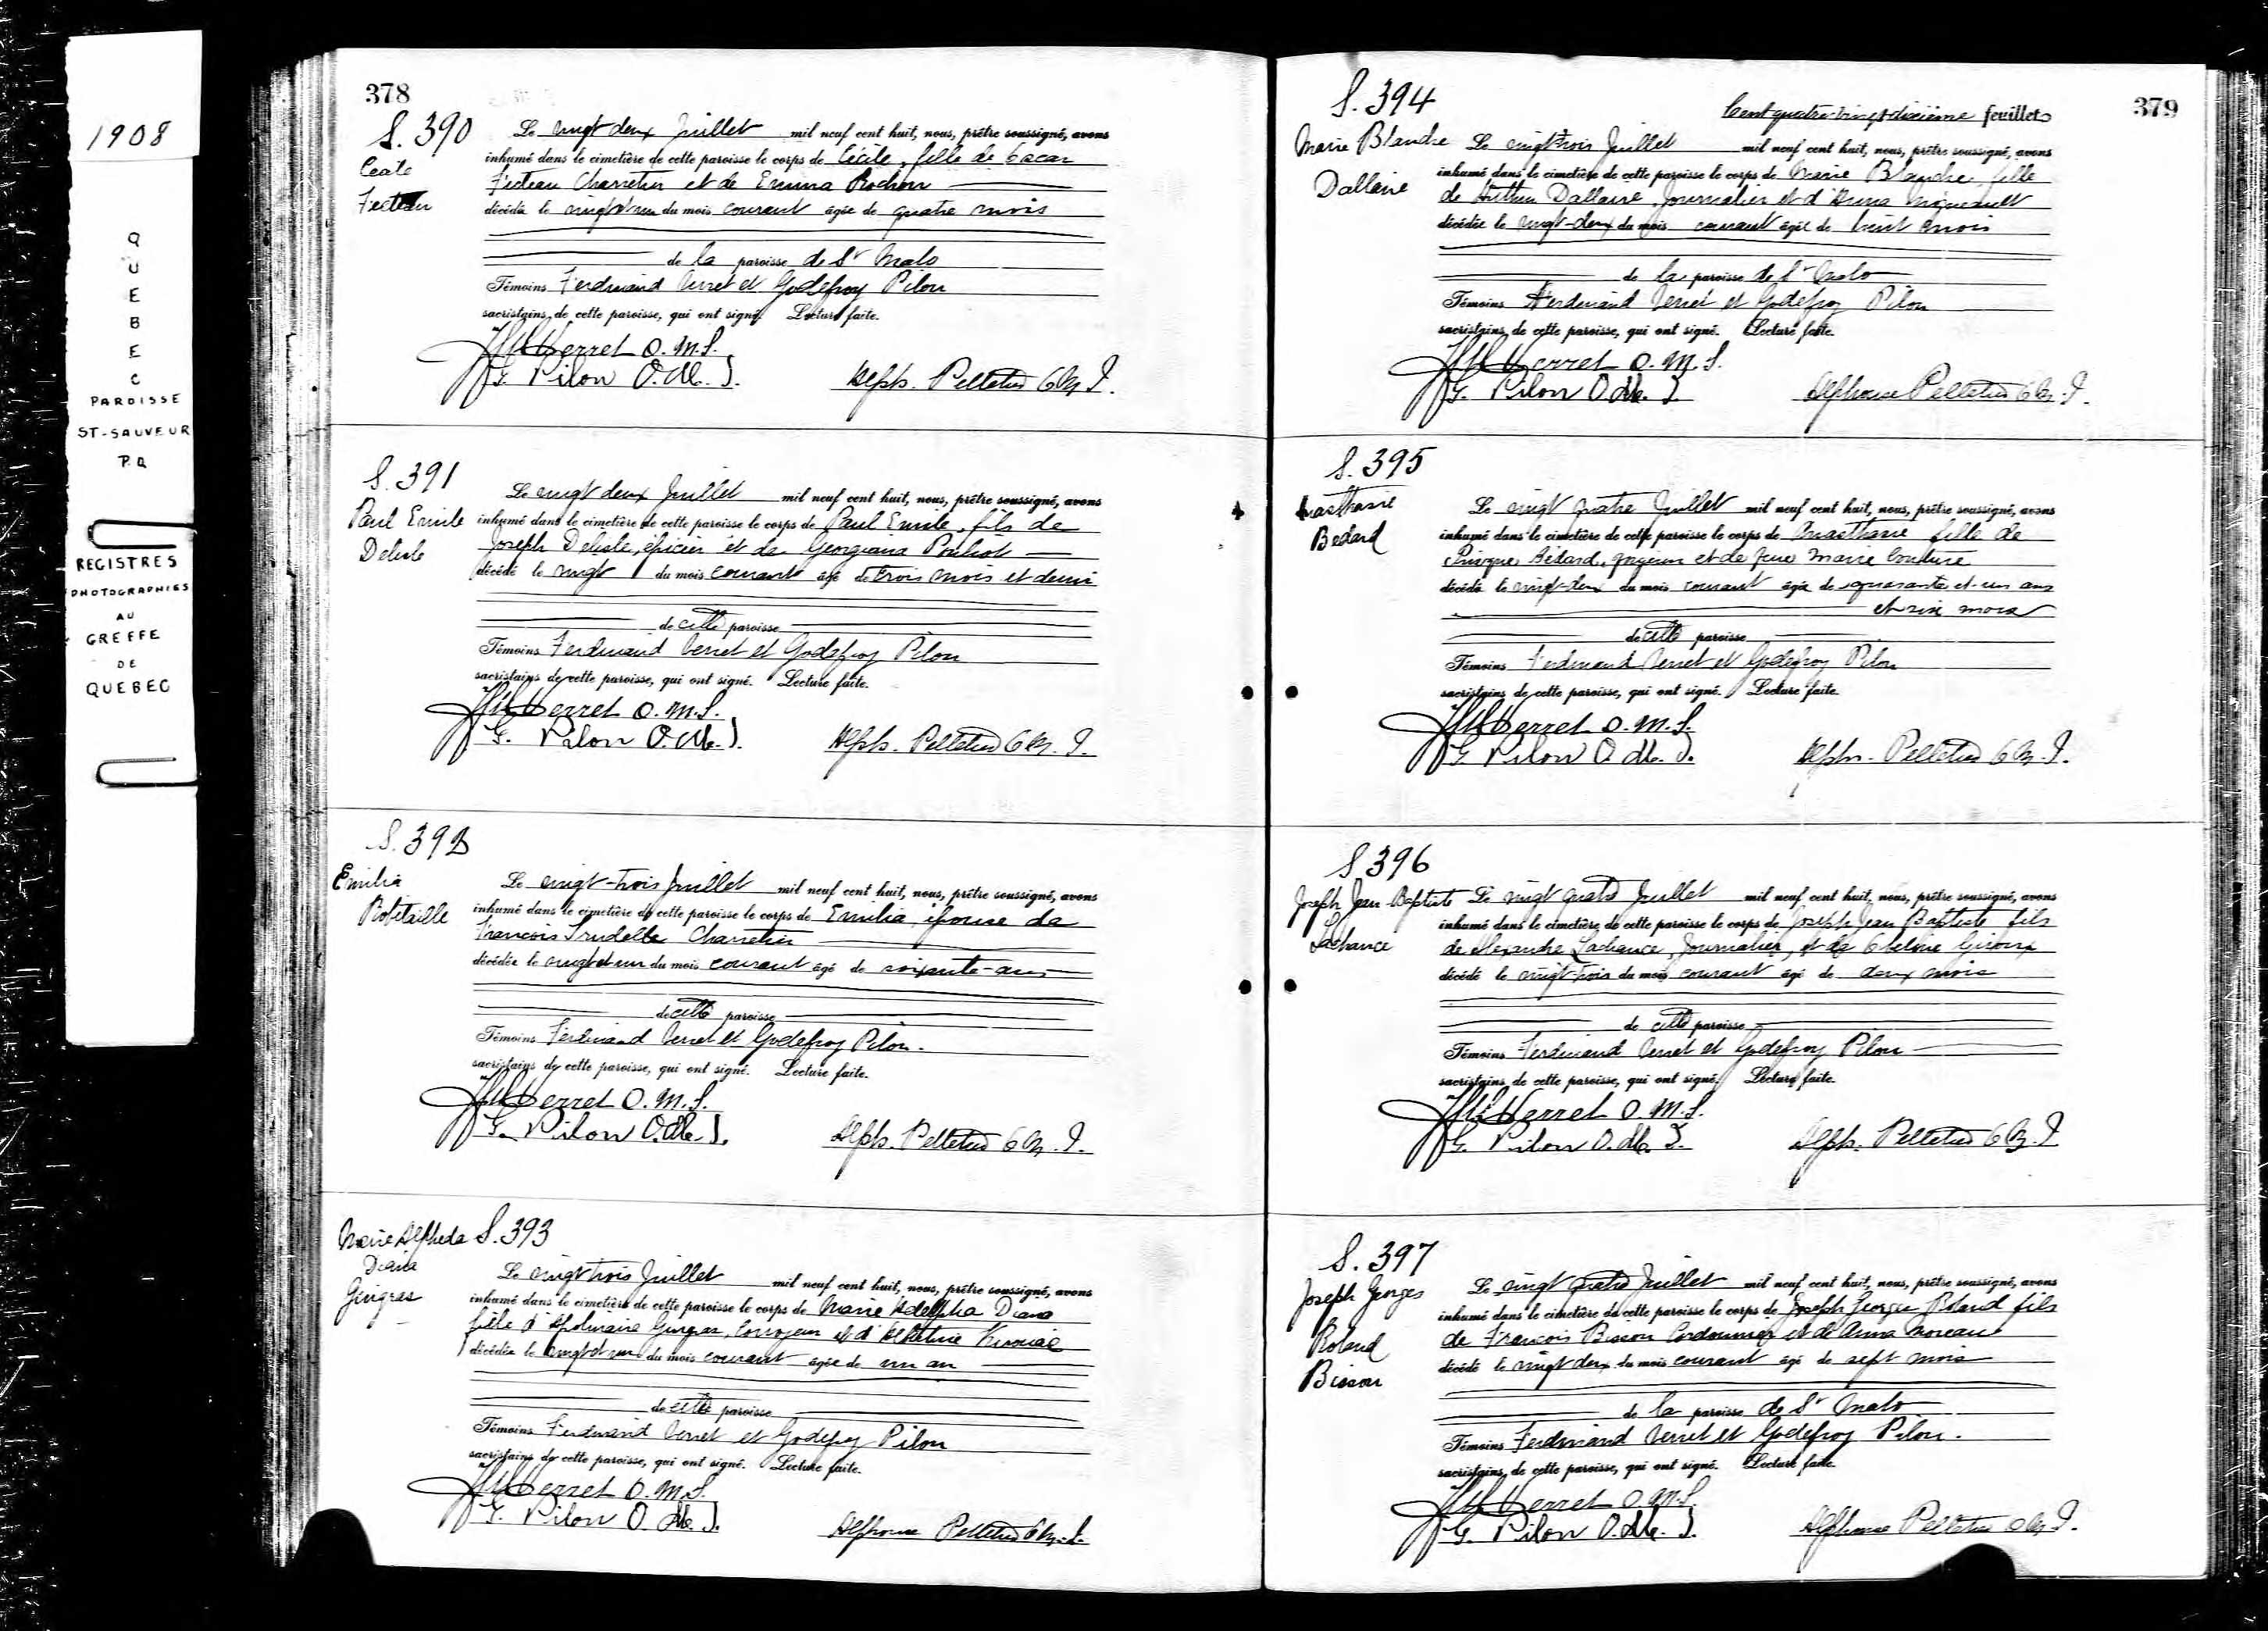 1908
QUEBEC
PAROISSE
ST-SAUVEUR
P.Q
REGISTRES
PHOTOGRAPHIES
AU
GREFFE
DE
QUEBEC
378
S. 390
Cecile
Fecteau
Le vingt deux Juillet mil neuf cent huit, nous, prêtre soussigné, avons
inhumé dans le cimetière de cette paroisse le corps de Cécile, fille de
Fecteau Charretier et de Emma Rochon
décédée le vingt et un du mois courant agée de quatre mois
de la paroisse de St Malo
Témoins Ferdinand Verret et Godefroy Pilon
sacristains de cette paroisse, qui ont signé. Lecture faite.
Verret O.M.I.
G. Pilon O.M.I.
Alph. Pelletier O.M.I.
S. 391
Paul Emile
Delisle
Le vingt deux Juillet mil neuf cent huit, nous, prêtre soussigné, avons
inhumé dans le cimetière de cette paroisse le corps de Paul Emile, fils de
Joseph Delisle, épicier et de Georgiana Pouliot
décédé le vingt du mois courant agé de trois mois et demi
de cette paroisse
Témoins Ferdinand Verret et Godefroy Pilon
sacristains de cette paroisse, qui ont signé. Lecture faite.
Verret O.M.I.
G. Pilon O.M.I.
Alph. Pelletier O.M.I.
S. 392
Emilia
Robitaille
Le vingt-trois Juillet mil neuf cent huit, nous, prêtre soussigné, avons
inhumé dans le cimetière de cette paroisse le corps de Emilia, épouse de
François Trudelle Charretier
décédée le vingt et un du mois courant agé de soixante-ans
de cette paroisse
Témoins Ferdinand Verret et Godefroy Pilon.
sacristains de cette paroisse, qui ont signé. Lecture faite.
Verret O.M.I.
G. Pilon O.M.I.
Alph. Pelletier O.M.I.
Marie Alpheda S. 393
Diana
Gingras
Le vingt trois Juillet mil neuf cent huit, nous, prêtre soussigné, avons
inhumé dans le cimetière de cette paroisse le corps de Marie Adelpha Diana
fille d'Apolinaire Gingras, Corroyeur et d' Kirouac
décédée le vingt et un du mois courant agée de un an
de cette paroisse
Témoins Ferdinand Verret et Godefroy Pilon
sacristains de cette paroisse, qui ont signé. Lecture faite.
Verret O.M.I.
G. Pilon O.M.I.
Alphonse Pelletier O.M.I.
S. 394
Cent quatre-vingt-dixième feuillet
379
Marie Blanche
Dallaire
Le vingt-trois Juillet mil neuf cent huit, nous, prêtre soussigné, avons
inhumé dans le cimetière de cette paroisse le corps de Marie Blanche, fille
de Arthur Dallaire, Journalier et d'Anna Migneault
décédée le vingt-deux du mois courant agée de huit mois
de la paroisse de St Malo
Témoins Ferdinand Verret et Godefroy Pilon
sacristains de cette paroisse, qui ont signé. Lecture faite.
Verret O.M.I.
G. Pilon O.M.I.
Alphonse Pelletier O.M.I.
S. 395
Bedard
Le vingt quatre Juillet mil neuf cent huit, nous, prêtre soussigné, avons
inhumé dans le cimetière de cette paroisse le corps de Anasthasie fille de
Bédard, et de feue Marie Couture
décédée le vingt-deux du mois courant agée de quarante et un ans
et six mois
de cette paroisse
Témoins Ferdinand Verret et Godefroy Pilon
sacristains de cette paroisse, qui ont signé. Lecture faite.
Verret O.M.I.
G. Pilon O.M.I.
Alph. Pelletier O.M.I.
S 396
Joseph Jean Baptiste
Lachance
Le vingt quatre Juillet mil neuf cent huit, nous, prêtre soussigné, avons
inhumé dans le cimetière de cette paroisse le corps de Joseph Jean Baptiste fils
de Alexandre Lachance, Journalier, et de Giroux
décédé le vingt-trois du mois courant agé de deux mois
de cette paroisse
Témoins Ferdinand Verret et Godefroy Pilon
sacristains de cette paroisse, qui ont signé. Lecture faite.
Verret O.M.I.
G. Pilon O.M.I.
Alph. Pelletier O.M.I.
S. 397
Joseph Georges
Roland
Bisson
Le vingt quatre Juillet mil neuf cent huit, nous, prêtre soussigné, avons
inhumé dans le cimetière de cette paroisse le corps de Joseph Georges Roland fils
de François Bisson Cordonnier et de Anna Moreau
décédé le vingt deux du mois courant agé de sept mois
de la paroisse de St Malo
Témoins Ferdinand Verret et Godefroy Pilon.
sacristains de cette paroisse, qui ont signé. Lecture faite.
Verret O.M.I.
G. Pilon O.M.I.
Alphonse Pelletier O.M.I.